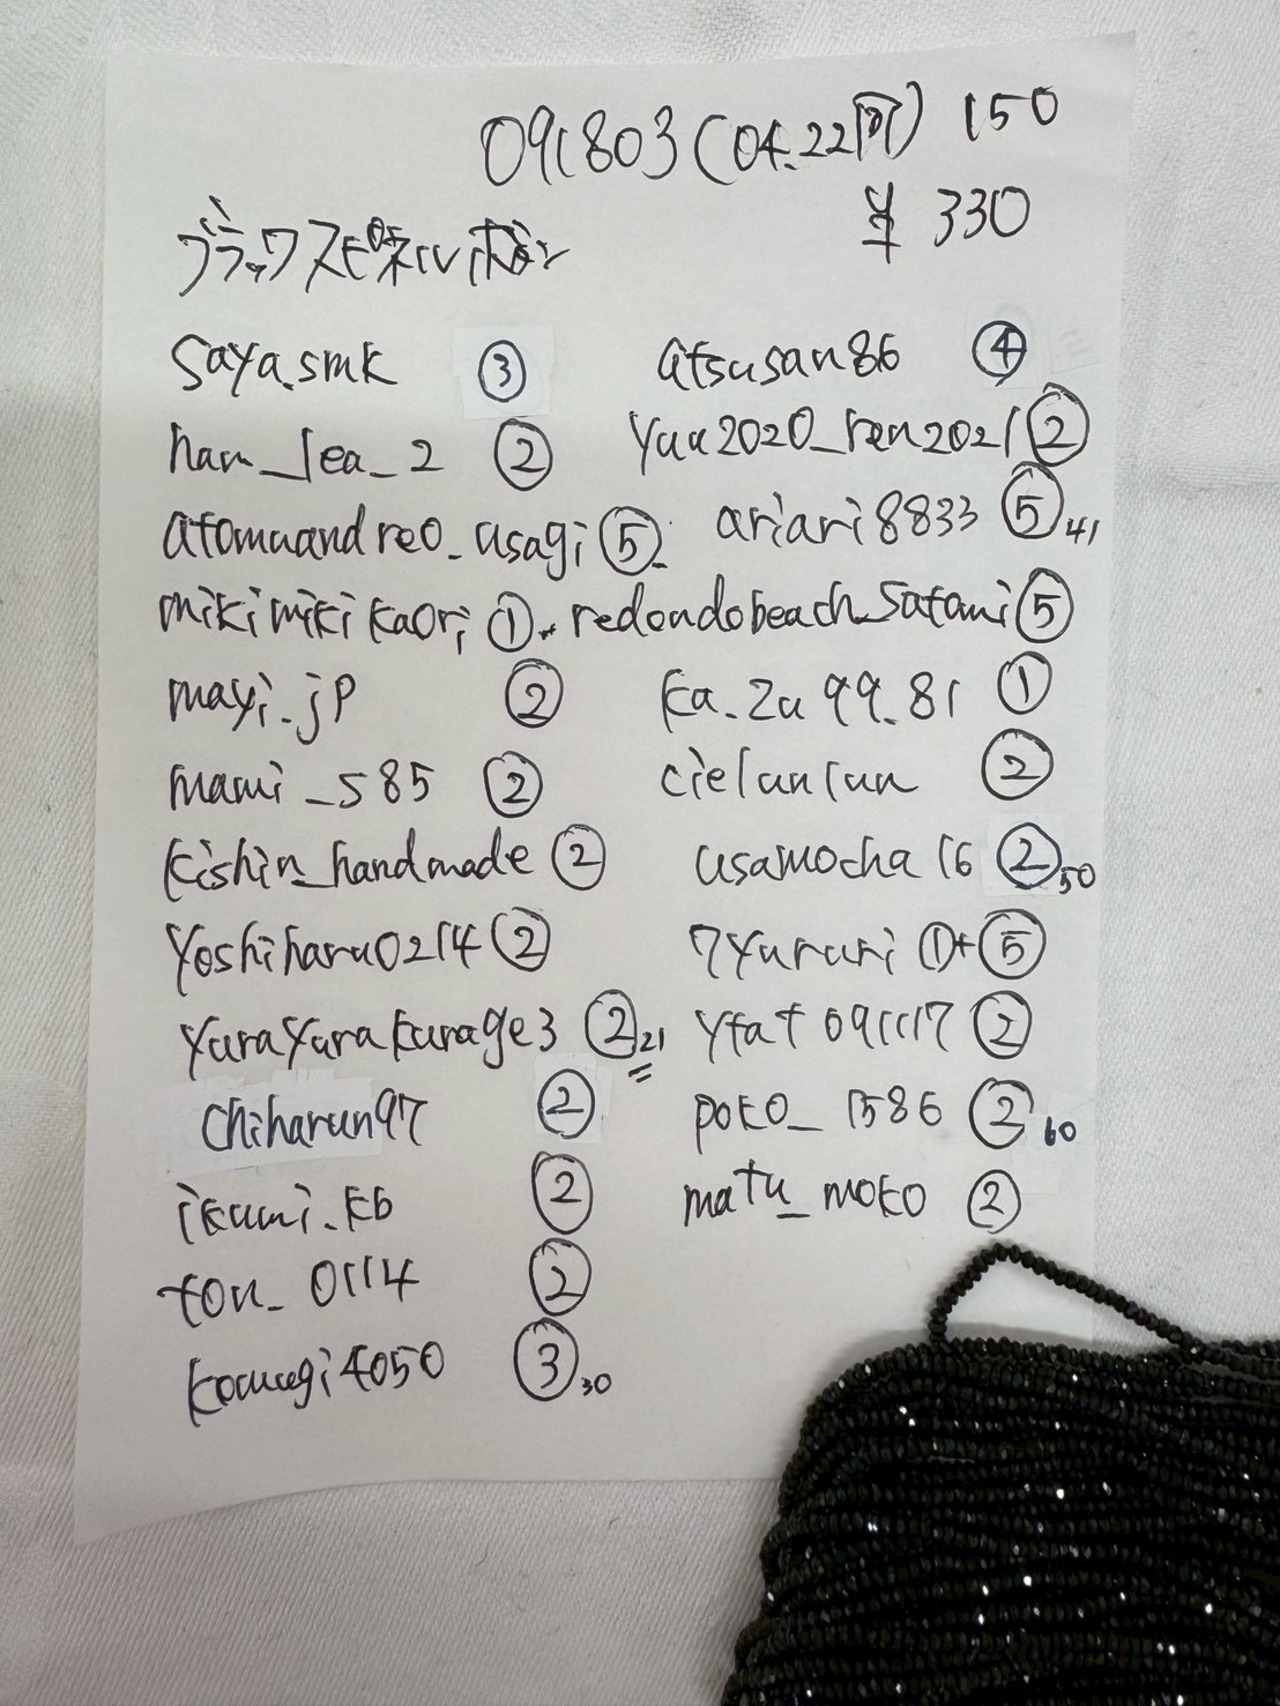 091803(04.22同) 150
¥ 330
ブラックスピネルボタン
saya.smk ③
han_lea_2 ②
atomuandreo_usagi ⑤
mikimikikaori ①
mayi.jp ②
mami_585 ②
kishin_handmade ②
yoshiharu0214 ②
yurayurakurage3 ② 21
chiharun97 ②
ikumi.kb ②
ton_0114 ②
komugi4050 ③ 30
atsusan86 ④
yuu2020_ren2021 ②
ariari8833 ⑤ 41
redondobeach_satomi ⑤
ka_zu99_81 ①
cielunlun ②
usamocha16 ② 50
7yururi ①+⑤
ytat091117 ②
poko_1586 ② 60
matu_moko ②